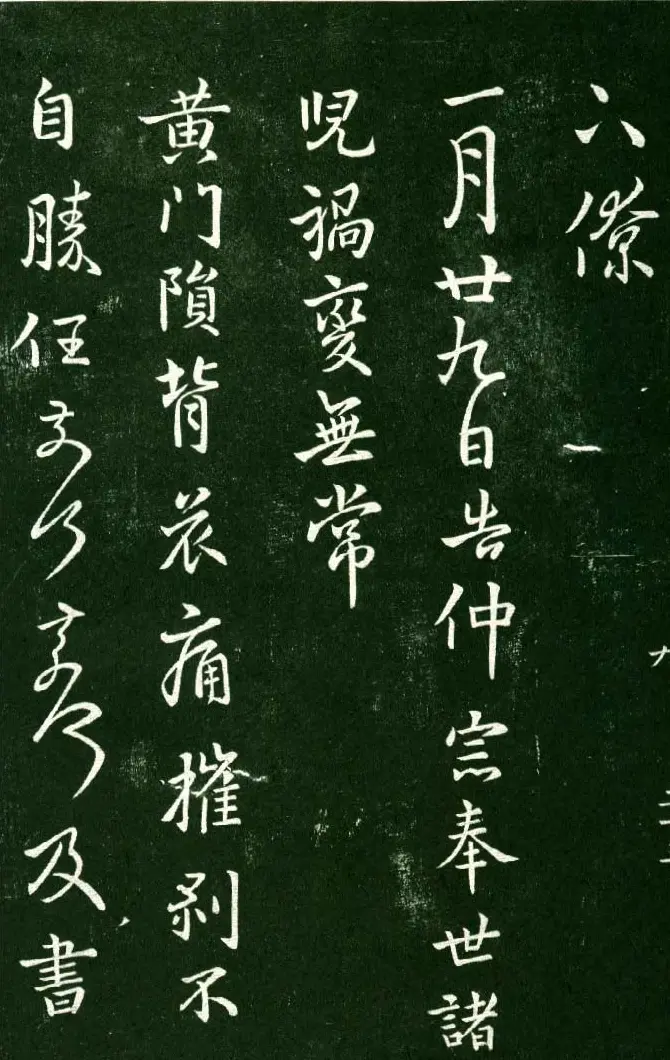 六僚
一月廿九日告仲宗奉世諸
児禍變無常
黃门隕背哀痛摧剥不
自勝任奈何奈何及書